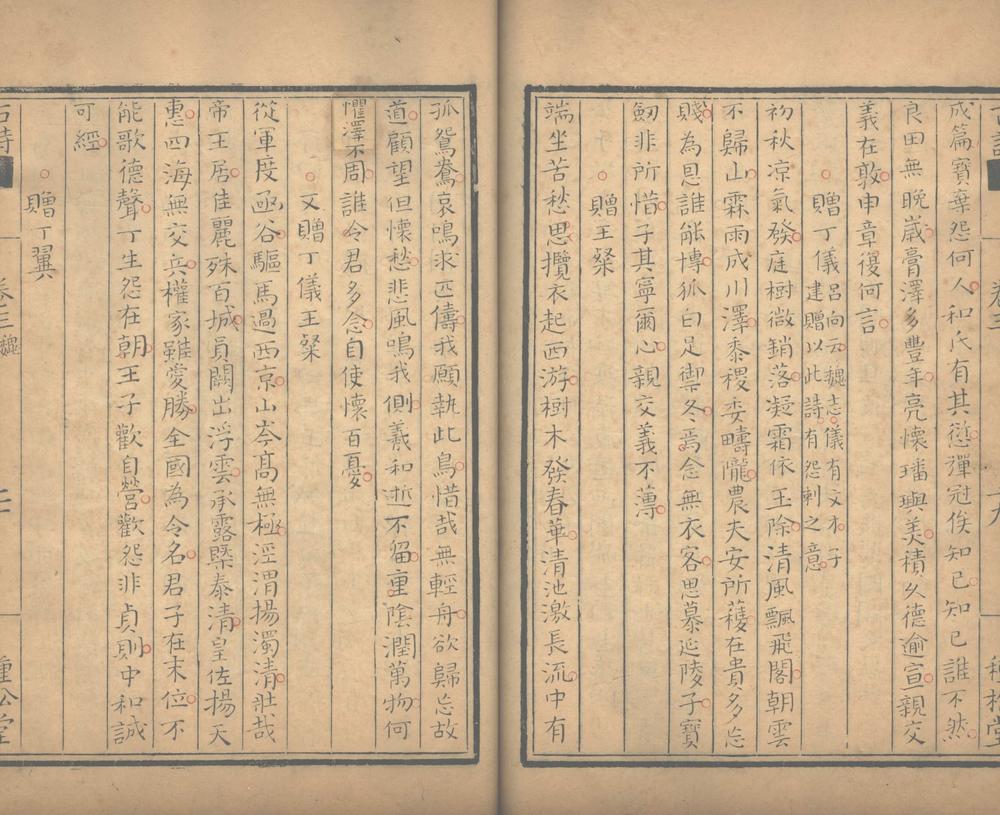 成篇寶棄怨何人和氏有其愆彈冠俟知己知己誰不然
良田無晚歲膏澤多豐年亮懷璠璵美積久德逾宣親交
義在敦申章復何言
贈丁儀 呂向云魏志儀有文才子建贈以此詩有怨刺之意
初秋凉氣發庭樹微銷落凝霜依玉除清風飄飛閣朝雲
不歸山霖雨成川澤黍稷委疇隴農夫安所穫在貴多忘
賤為恩誰能博狐白足禦冬焉念無衣客思慕延陵子寶
劒非所惜子其寧爾心親交義不薄
贈王粲
端坐苦愁思攬衣起西游樹木發春華清池激長流中有
孤鴛鴦哀鳴求匹儔我願執此鳥惜哉無輕舟欲歸忘故
道顧望但懷愁悲風鳴我側羲和逝不留重陰潤萬物何
懼澤不周誰令君多念自使懷百憂
又贈丁儀王粲
從軍度函谷驅馬過西京山岑高無極涇渭揚濁清壯哉
帝王居佳麗殊百城員闕出浮雲承露槩泰清皇佐揚天
惠四海無交兵權家雖愛勝全國為令名君子在末位不
能歌德聲丁生怨在朝王子歡自營歡怨非貞則中和誠
可經
贈丁翼